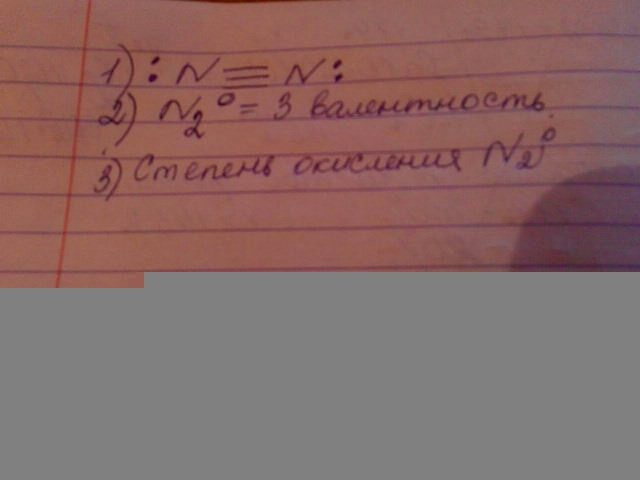 1) :N≡N:
2) N₂⁰ = 3 валентность.
3) Степень окисления N₂⁰